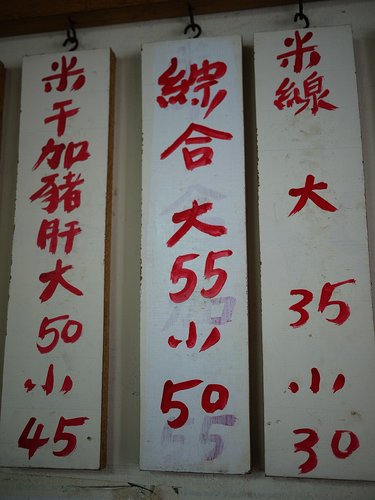 米線大35小30
綜合大55小50
米干加豬肝大50小45